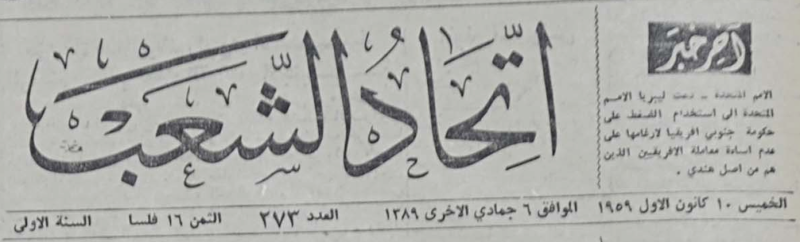 آخر خبر
الامم المتحدة – دعت ليبريا الامم
المتحدة الى استخدام الضغط على
حكومة جنوبي افريقيا لارغامها على
عدم اساءة معاملة الافريقيين الذين
هم من اصل هندي .
اتحاد الشعب
الخميس ١٠ كانون الاول ١٩٥٩ الموافق ٦ جمادي الاخرى ١٣٨٩ العدد ٢٧٣ الثمن ١٦ فلسا السنة الاولى